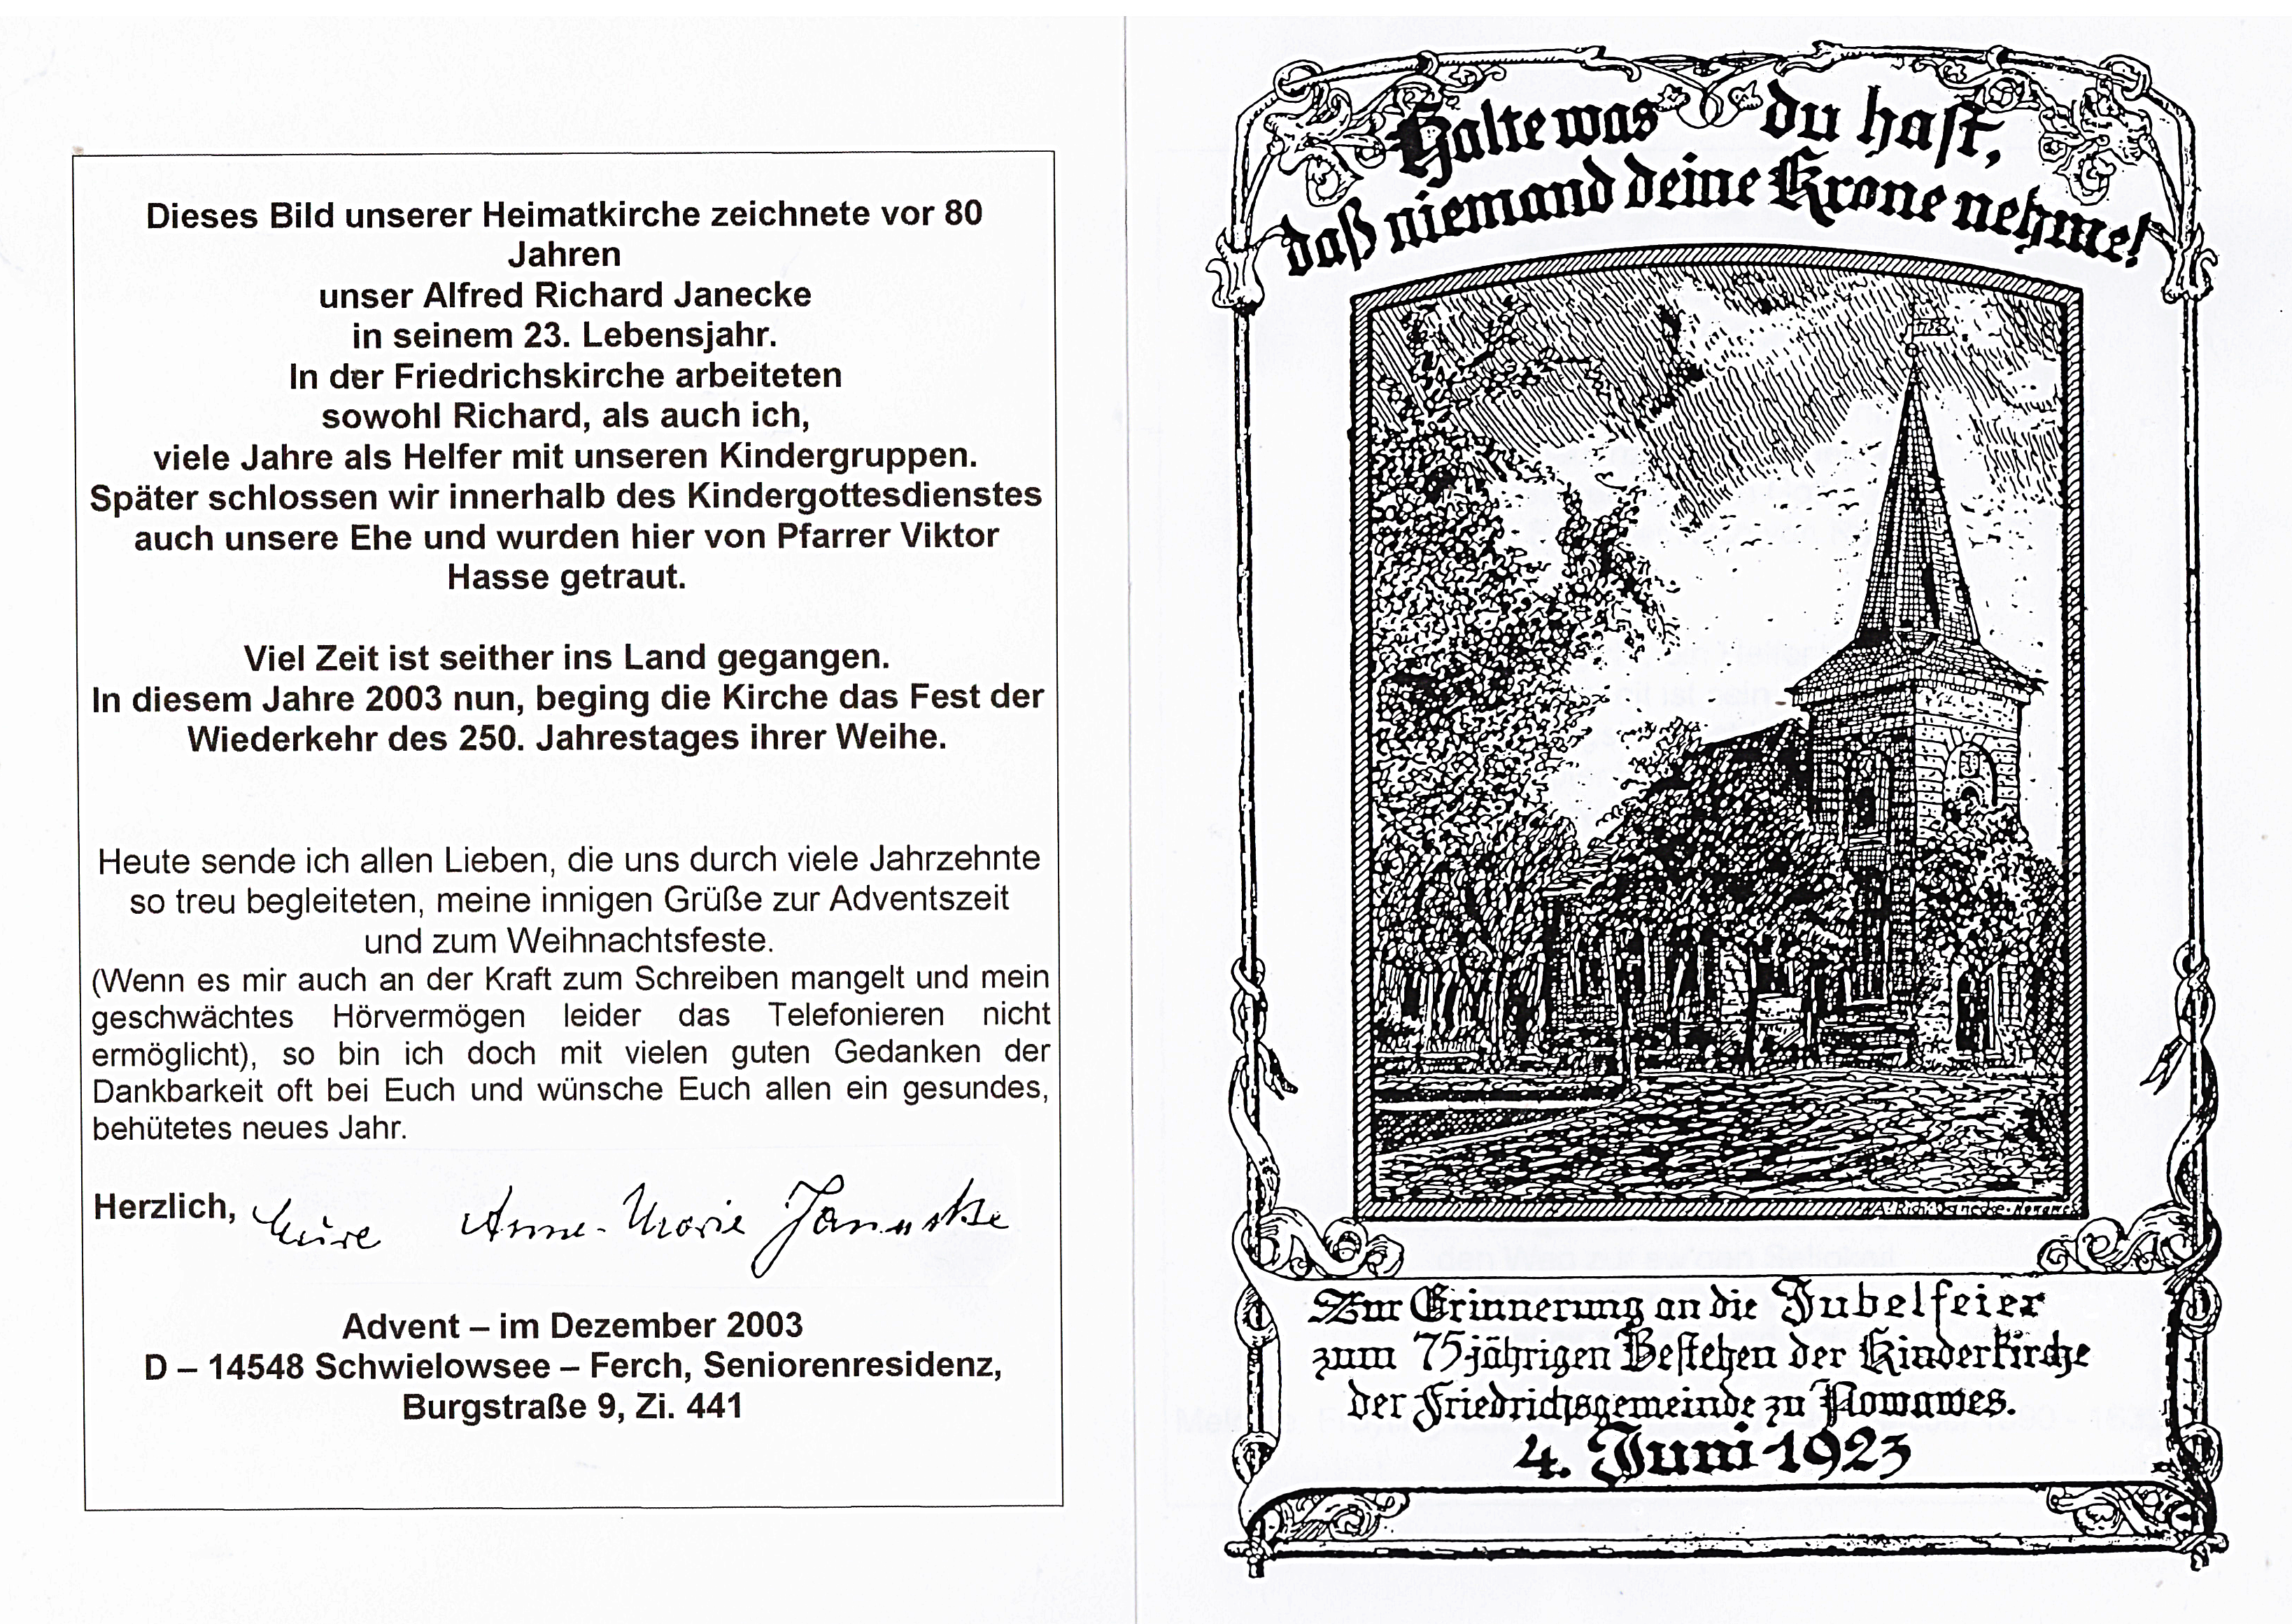 Dieses Bild unserer Heimatkirche zeichnete vor 80
Jahren
unser Alfred Richard Janecke
in seinem 23. Lebensjahr.
In der Friedrichskirche arbeiteten
sowohl Richard, als auch ich,
viele Jahre als Helfer mit unseren Kindergruppen.
Später schlossen wir innerhalb des Kindergottesdienstes
auch unsere Ehe und wurden hier von Pfarrer Viktor
Hasse getraut.
Viel Zeit ist seither ins Land gegangen.
In diesem Jahre 2003 nun, beging die Kirche das Fest der
Wiederkehr des 250. Jahrestages ihrer Weihe.
Heute sende ich allen Lieben, die uns durch viele Jahrzehnte
so treu begleiteten, meine innigen Grüße zur Adventszeit
und zum Weihnachtsfeste.
(Wenn es mir auch an der Kraft zum Schreiben mangelt und mein
geschwächtes Hörvermögen leider das Telefonieren nicht
ermöglicht), so bin ich doch mit vielen guten Gedanken der
Dankbarkeit oft bei Euch und wünsche Euch allen ein gesundes,
behütetes neues Jahr.
Herzlich, Eure Anne-Marie Janecke
Advent – im Dezember 2003
D – 14548 Schwielowsee – Ferch, Seniorenresidenz,
Burgstraße 9, Zi. 441
Halte was du hast,
daß niemand deine Krone nehme!
Zur Erinnerung an die Jubelfeier
zum 75jährigen Bestehen der Kinderkirche
der Friedrichsgemeinde zu Nowawes.
4. Juni 1923